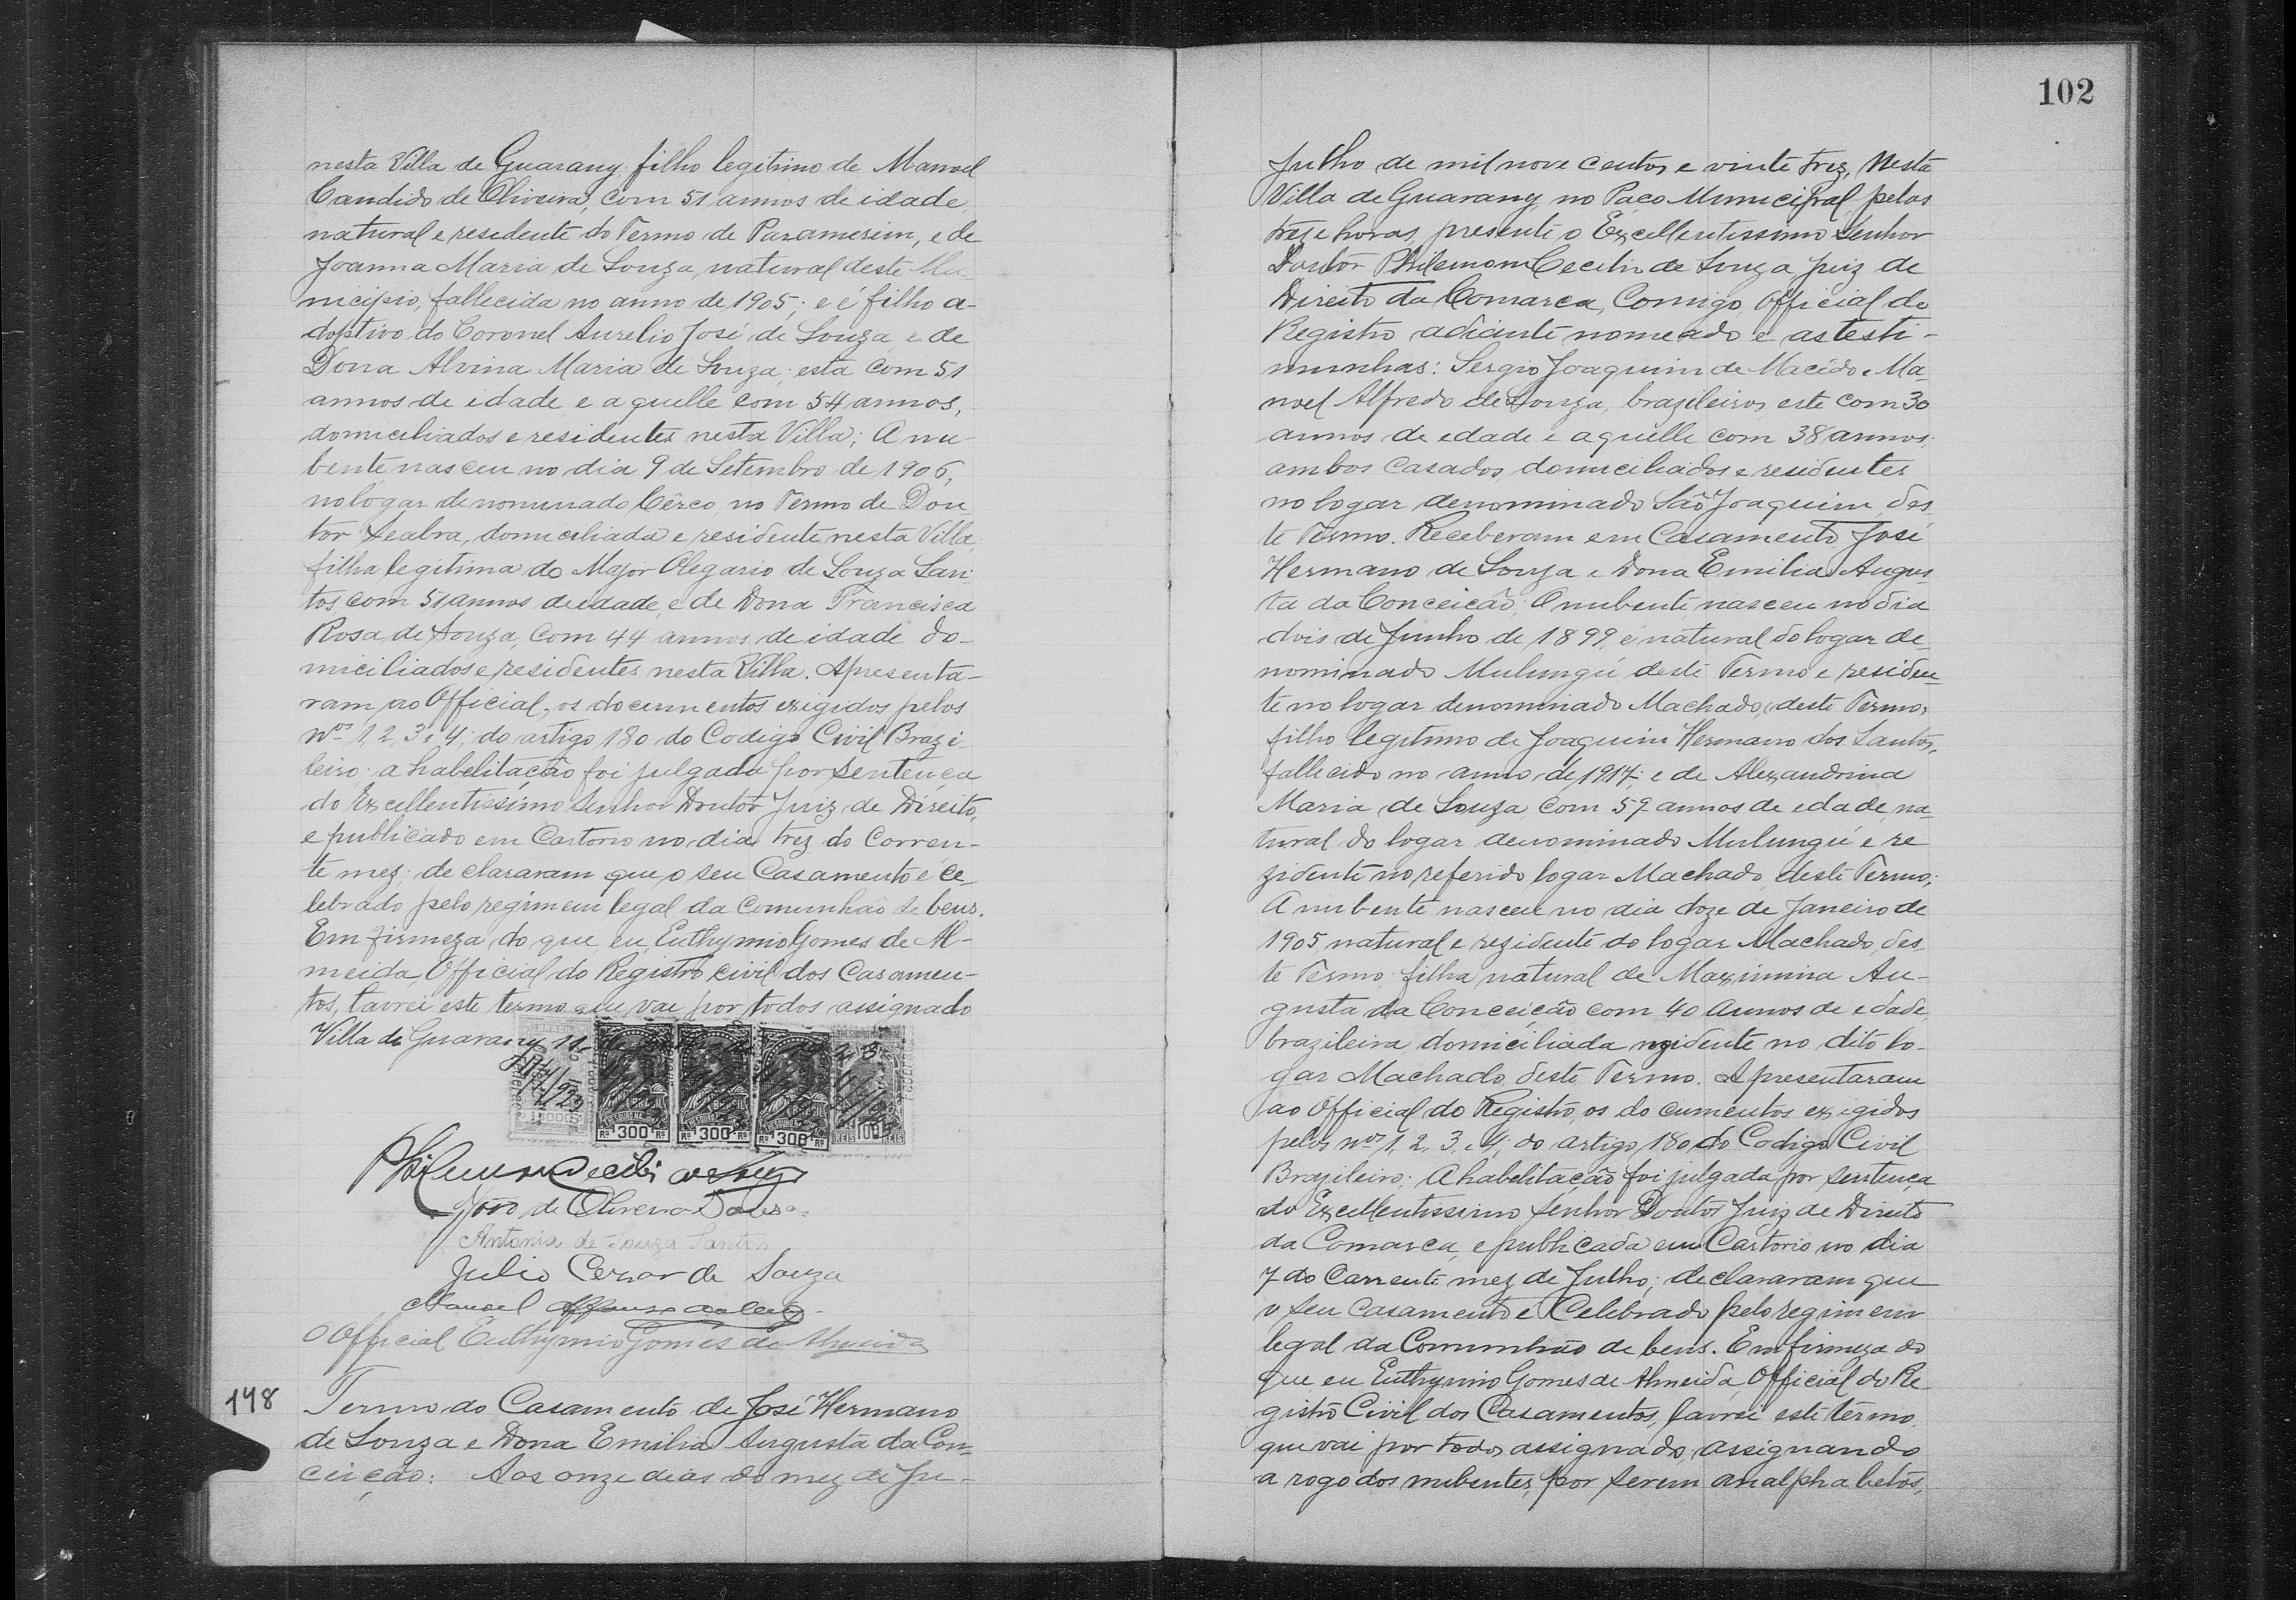 nesta Villa de Guarany filho legitimo de Manoel
Candido de Oliveira, com 51 annos de idade,
natural e residente do Termo de Paramerim, e de
Joanna Maria de Souza, natural deste Mu-
nicipio, fallecida no anno de 1905; e é filho a-
doptivo do Coronel Aurelio José de Souza e de
Dona Alvina Maria de Souza; esta com 51
annos de idade e aquelle com 54 annos,
domiciliados e residentes nesta Villa; A nu-
bente nasceu no dia 9 de Setembro de 1906,
no logar denominado Cêrco, no Termo de Dou-
tor Seabra, domiciliada e residente nesta Villa,
filha legitima do Major Olegario de Souza San-
tos com 51 annos de edade, e de Dona Francisca
Rosa de Souza, com 44 annos de idade do-
miciliados e residentes nesta Villa. Apresenta-
ram ao Official, os documentos exigidos pelos
nos 1, 2, 3 e 4; do artigo 180 do Codigo Civil Brazi-
leiro; a habelitação foi julgada por sentença
do Excellentissimo Senhor Doutor Juiz de Direito,
e publicado em Cartorio no dia trez do Corren-
te mez; declararam que o seu Casamento é ce-
lebrado pelo regimem legal da Comunhão de bens.
Em firmeza do que eu, Euthymio Gomes de Al-
meida, Official do Registro civil dos Casamen-
tos, lavrei este termo que vae por todos assignado
Villa de Guarany 11
300 300 300 100
Philemon Cecilio de Souza
João de Oliveira Souza
Antonia de Souza Santos
Julio Cezar de Souza
Manoel Affonso
O Official Euthymio Gomes de Almeida
148
Termo do Casamento de José Hermano
de Souza e Dona Emilia Augusta da Con-
ceição: Aos onze dias do mez de Ju-
102
Julho de mil nove centos e vinte trez, Nesta
Villa de Guarany, no Paço Municipal, pelas
treze horas, presente o Excellentissimo Senhor
Doutor Philemon Cecilio de Souza Juiz de
Direito da Comarca, Comigo, Official do
Registro adiante nomeado e as testi-
munhas: Sergio Joaquim de Macêdo e Ma-
noel Alfredo de Souza, brazileiros, este com 30
annos de edade e aquelle com 38 annos;
ambos Casados, domiciliados e residentes
no logar denominado São Joaquim, des
te Termo. Receberam em Casamento José
Hermano de Souza e Dona Emilia Augus
ta da Conceição; O nubente nasceu no dia
dois de Junho de 1899, é natural do logar de-
nominado Mulungú deste Termo e residen-
te no logar denominado Machado, deste Termo,
filho legitimo de Joaquim Hermano dos Santos,
fallecido no anno de 1917; e de Alexandrina
Maria de Souza, com 59 annos de edade, na-
tural do logar denominado Mulungú e re
zidente no referido logar Machado, deste Termo;
A nubente nasceu no dia doze de Janeiro de
1905 natural e rezidente do logar Machado, des
te Termo; filha natural de Maximina Au-
gusta da Conceição com 40 annos de edade,
brazileira, domiciliada rezidente no dito lo-
gar Machado, deste Termo. Apresentaram
ao Official do Registro, os documentos exigidos
pelos nos 1, 2, 3, e 4; do artigo 180 do Codigo Civil
Brazileiro; A habelitação foi julgada por sentença
do Excellentissimo Senhor Doutor Juiz de Direito
da Comarca, e publicada em Cartorio no dia
7 do Corrente mez de Julho; declararam que
o seu casamento é Celebrado pelo regimem
legal da Comunhão de bens. Em firmeza do
que, eu Euthymio Gomes de Almeida, Official do Re-
gistro Civil dos Casamentos, lavrei este termo,
que vai por todos assignado, assignando
a rogo dos nubentes, por serem analphabetos,